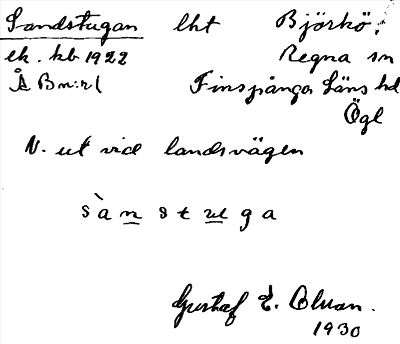 Sandstugan lht Björkö:
ek. kb 1922 Regna sn
Å B n:r 1 Finspånga Läns hd
Ögl
N. ut vid landsvägen
s à n s t u g a
Gustaf E.
1930